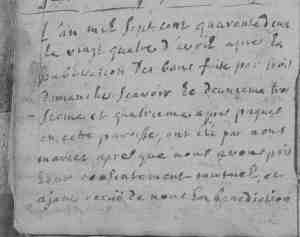 L'an mil sept cent quarante deux
le vingt quatre d'avril apres la
publication des bans faite par trois
dimanches scavoir le deuxieme troi
sieme et quatrieme apres paques
en cette paroisse, ont été par nous
mariez apres que nous avons pris
leur consentement mutuel, et
ayant receu de nous la benediction